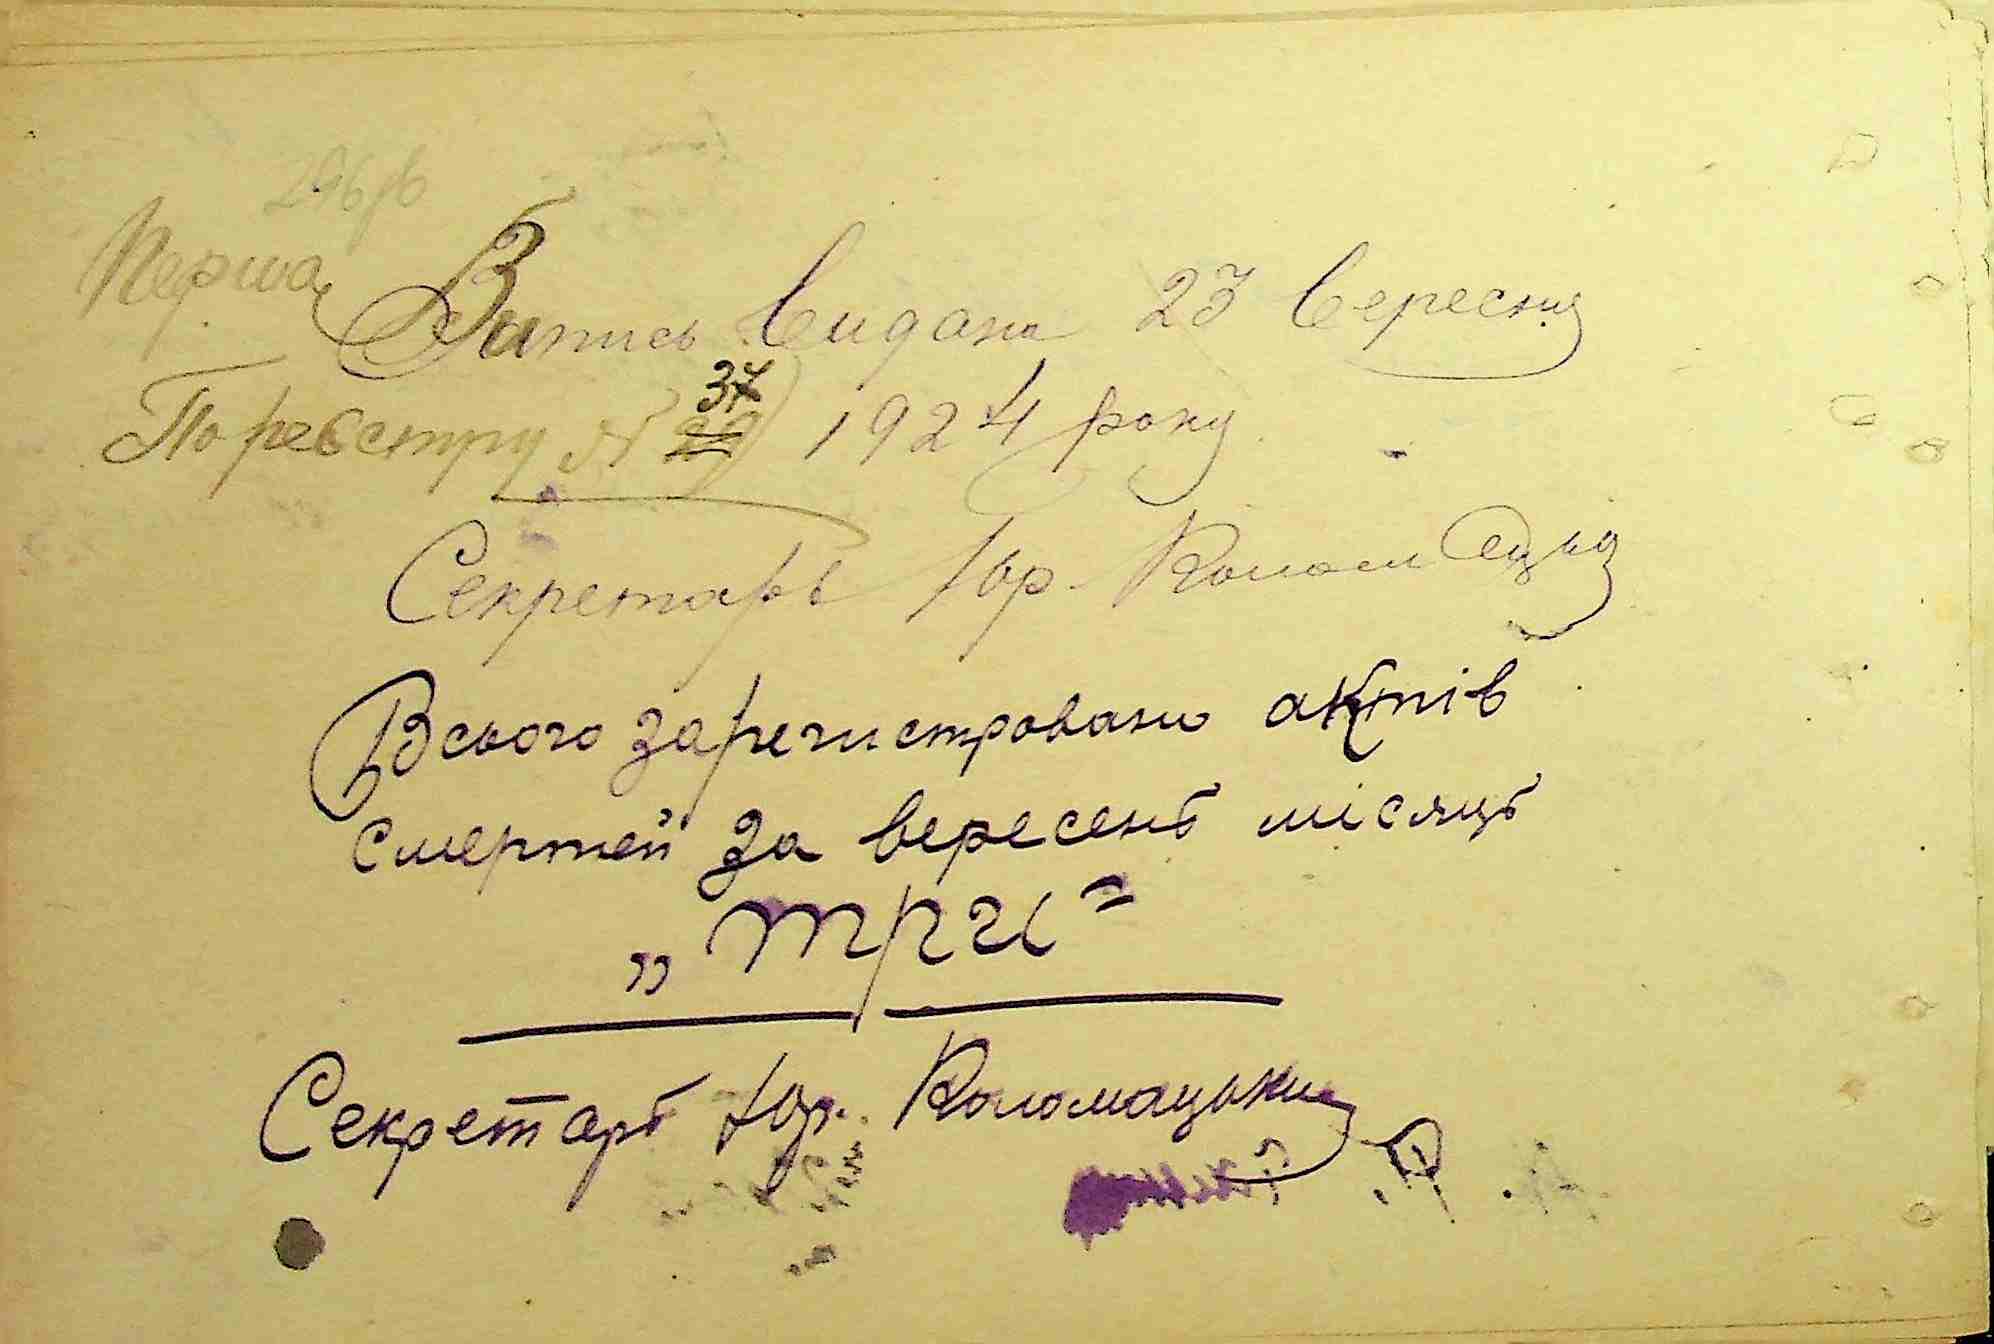 Перша Випись видана 23 вересня
По реєстру № 37 1924 року
Секретарь Юр. Коломацьк
Всього зарегистровано актів
смертей за вересень місяць
„три"
Секретарь Юр. Коломацький